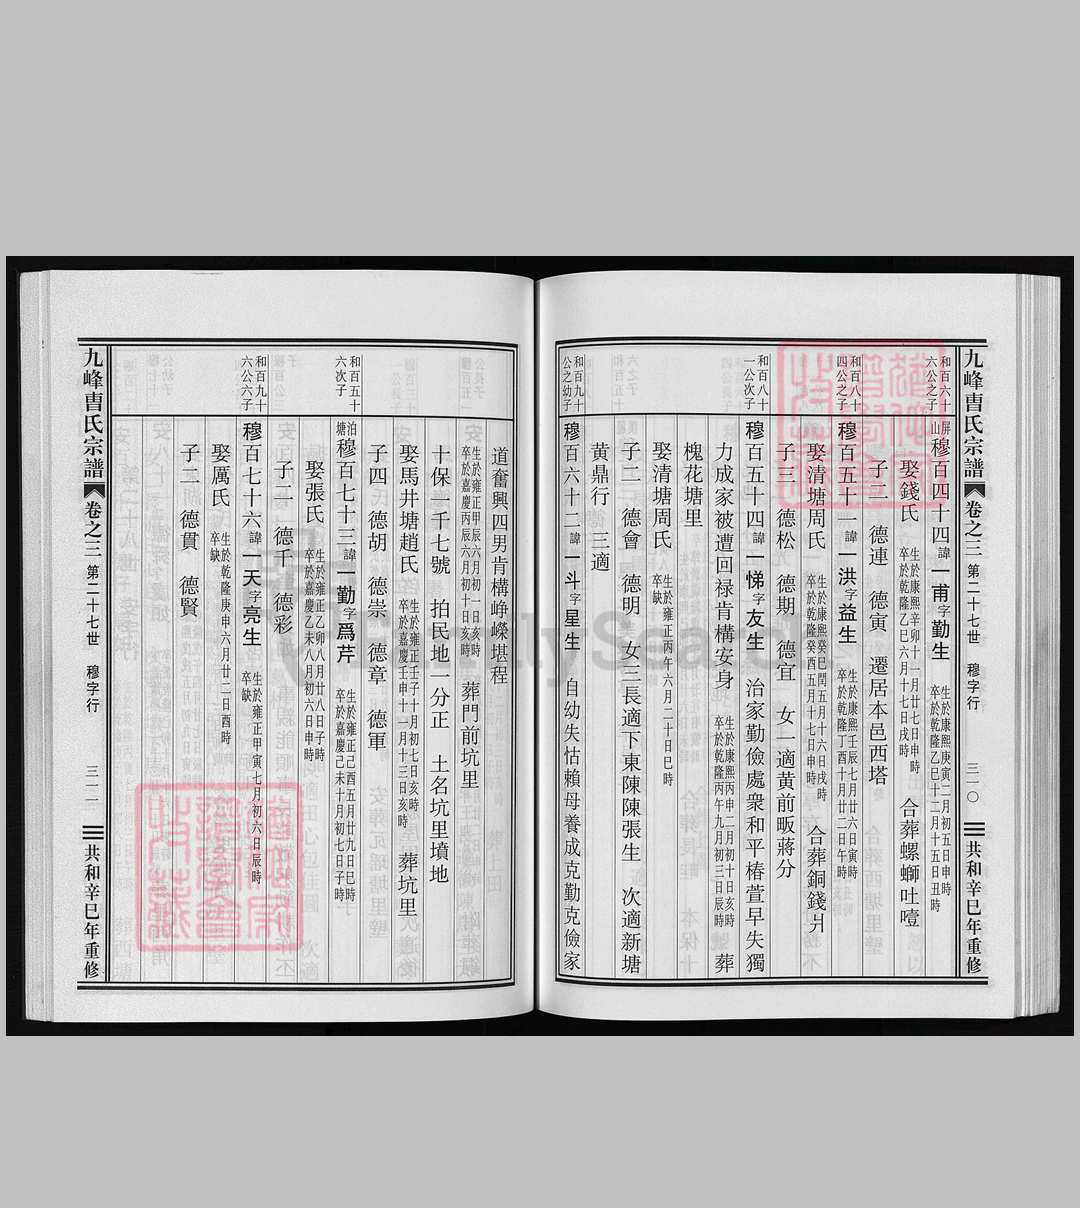 九峰曹氏宗譜 卷之三 第二十七世 穆字行 三一〇 共和辛巳年重修
和百六十六公之子
屏山穆百四十四諱一甫字勤生 生於康熙庚寅二月初五日申時 卒於乾隆乙巳十二月十五日丑時
娶錢氏 生於康熙辛卯十一月廿七日申時 卒於乾隆乙巳六月十七日戌時 合葬螺螄吐噎
子二 德連 德寅 遷居本邑西塔
和百八十四公之子
穆百五十一諱一洪字益生 生於康熙壬辰七月廿六日寅時 卒於乾隆丁酉十月廿二日午時
娶清塘周氏 生於康熙癸巳閏五月十六日戌時 卒於乾隆癸酉五月十七日申時 合葬銅錢爿
子三 德松 德期 德宜 女一適黃前畈蔣分
和百八十一公次子
穆百五十四諱一悌字友生 治家勤儉處衆和平椿萱早失獨
力成家被遭回禄肯構安身 生於康熙丙申二月初十日亥時 卒於乾隆丙午九月初三日辰時 葬
槐花塘里
娶清塘周氏 生於雍正丙午六月二十日巳時 卒缺
子二 德會 德明 女三長適下東陳陳張生 次適新塘
黃鼎行 三適
和百九十公之幼子
穆百六十二諱一斗字星生 自幼失怙賴母養成克勤克儉家
道奮興四男肯構崢嶸堪程
生於雍正甲辰六月初一日亥時 卒於嘉慶丙辰六月初十日亥時 葬門前坑里
十保一千七號 拍民地一分正 土名坑里墳地
娶馬井塘趙氏 生於雍正壬子十月初七日亥時 卒於嘉慶壬申十一月十三日亥時 葬坑里
子四 德胡 德崇 德章 德軍
和百五十六次子
泊塘穆百七十三諱一勤字爲芹 生於雍正己酉五月廿九日巳時 卒於嘉慶己未十月初七日子時
娶張氏 生於雍正乙卯八月廿八日子時 卒於嘉慶乙未八月初六日申時
子二 德千 德彩
和百九十六公六子
穆百七十六諱一天字亮生 生於雍正甲寅七月初六日辰時 卒缺
娶厲氏 生於乾隆庚申六月廿二日酉時 卒缺
子二 德貫 德賢
九峰曹氏宗譜 卷之三 第二十七世 穆字行 三一一 共和辛巳年重修
FamilySearch